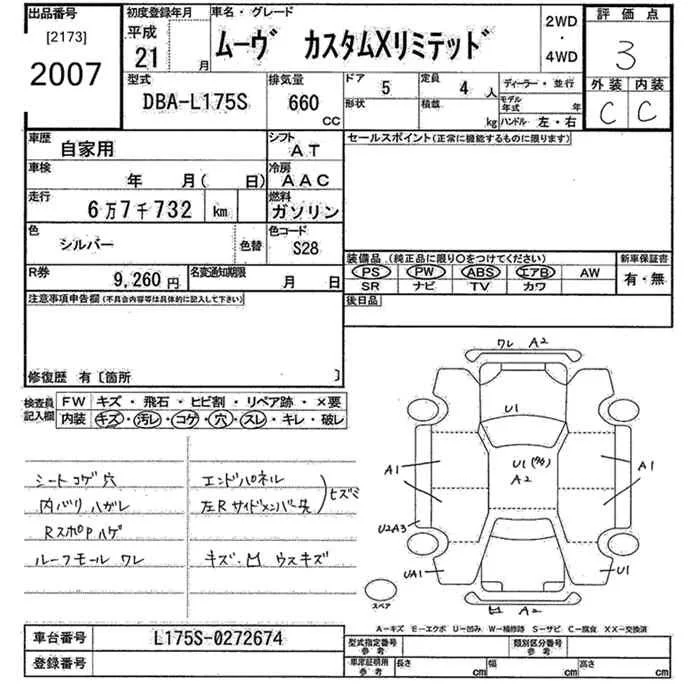 出品番号 初度登録年月 車名・グレード 2WD ・ 4WD 評価点
[2173] 2007 平成 21 月 ムーヴ カスタムXリミテッド 3
型式 排気量 ドア 5 定員 4 人 ディーラー・並行 外装 内装
DBA-L175S 660 CC 形状 積載 kg モデル年式 年 ハンドル 左・右 C C
車歴 自家用 シフト AT セールスポイント(正常に機能するものに限ります)
車検 年 月( 日) 冷房 AAC
走行 6万7千732 km 燃料 ガソリン
色 シルバー 色替 色コード S28
装備品 (純正品に限り○をつけてください) 新車保証書
PS PW ABS エアB AW 有・無
SR ナビ TV カワ
R券 9,260円 名変通知期限 月 日
後日品
注意事項申告欄(不具合内容等は具体的に記入して下さい)
修復歴 有〔箇所 〕
検査員記入欄 FW キズ・飛石・ヒビ割・リペア跡・×要
内装 キズ・汚レ・コゲ・穴・スレ・キレ・破レ
シートコゲ穴 エンドパネル
内バリハガレ 左Rサイドメンバー先 ヒズミ
RスポPハゲ
ルーフモールワレ キズ・凹 ウスキズ
ワレ A2
U1
U1 A2
A1 A1
U2A3
UA1 U1
スペア
凹 A2
A-キズ E-エクボ U-凹み W-補修跡 S-サビ C-腐食 XX-交換済
車台番号 L175S-0272674 型式指定番号 参考 類別区分番号 参考
登録番号 車庫証明用 参考 長さ cm 幅 cm 高さ cm